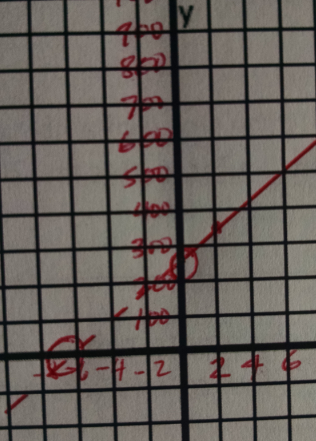 y
900
800
700
600
500
400
300
200
100
-4 -2 2 4 6